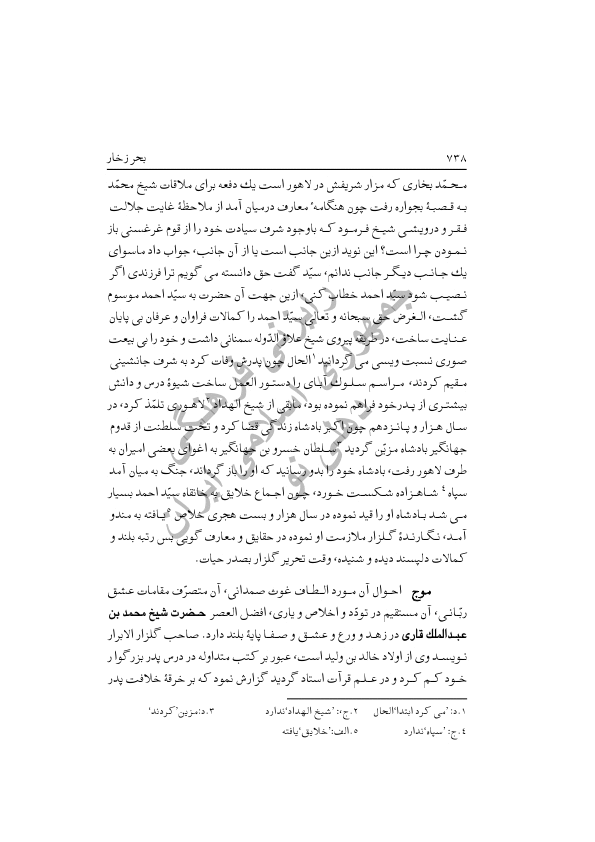 ۷۳۸ بحر زخار
محمّد بخاری که مزار شریفش در لاهور است یك دفعه برای ملاقات شیخ محمّد
به قصبهٔ بجواره رفت چون هنگامهٔ معارف درمیان آمد از ملاحظهٔ غایت جلالت
فقر و درویشی شیخ فرمود که باوجود شرف سیادت خود را از قوم غرغسنی باز
نمودن چرا است؟ این نوید ازین جانب است یا از آن جانب، جواب داد ماسوای
یك جانب دیگر جانب ندانم، سیّد گفت حق دانسته می گویم ترا فرزندی اگر
نصیب شود سیّد احمد خطاب کنی، ازین جهت آن حضرت به سیّد احمد موسوم
گشت، الغرض حق سبحانه و تعالی سیّد احمد را کمالات فراوان و عرفان بی پایان
عنایت ساخت، در طریقه پیروی شیخ علاؤ الدّوله سمنانی داشت و خود را بی بیعت
صوری نسبت ویسی می گردانید ۱الحال چون پدرش وفات کرد به شرف جانشینی
مقیم کردند، مراسم سلوك آبای را دستور العمل ساخت شیوهٔ درس و دانش
بیشتری از پدرخود فراهم نموده بود، مابقی از شیخ الهداد ۲لاهوری تلمّذ کرد، در
سال هزار و پانزدهم چون اکبر بادشاه زندگی قضا کرد و تخت سلطنت از قدوم
جهانگیر بادشاه مزیّن گردید ۳سلطان خسرو بن جهانگیر به اغوای بعضی امیران به
طرف لاهور رفت، بادشاه خود را بدو رسانید که او را باز گرداند، جنگ به میان آمد
سپاه ۴ شاهزاده شکست خورد، چون اجماع خلایق به خانقاه سیّد احمد بسیار
می شد بادشاه او را قید نموده در سال هزار و بست هجری خلاص ۵یافته به مندو
آمد، نگارندهٔ گلزار ملازمت او نموده در حقایق و معارف گویی بس رتبه بلند و
کمالات دلپسند دیده و شنیده، وقت تحریر گلزار بصدر حیات.
موج احوال آن مورد الطاف غوث صمدانی، آن متصرّف مقامات عشق
ربّانی، آن مستقیم در تودّد و اخلاص و یاری، افضل العصر حضرت شیخ محمد بن
عبدالملك قاری در زهد و ورع و عشق و صفا پایهٔ بلند دارد. صاحب گلزار الابرار
نویسد وی از اولاد خالد بن ولید است، عبور بر کتب متداوله در درس پدر بزرگوار
خود کم کرد و در علم قرآت استاد گردید گزارش نمود که بر خرقهٔ خلافت پدر
۱.د: ’می کرد ابتدا‘الحال ۲.ج،: ’شیخ الهداد‘ندارد ۳.د:مزین’کردند‘
۴.ج: ’سپاه‘ندارد ۵.الف:’خلایق‘یافته
جمهوری اسلامی ایران